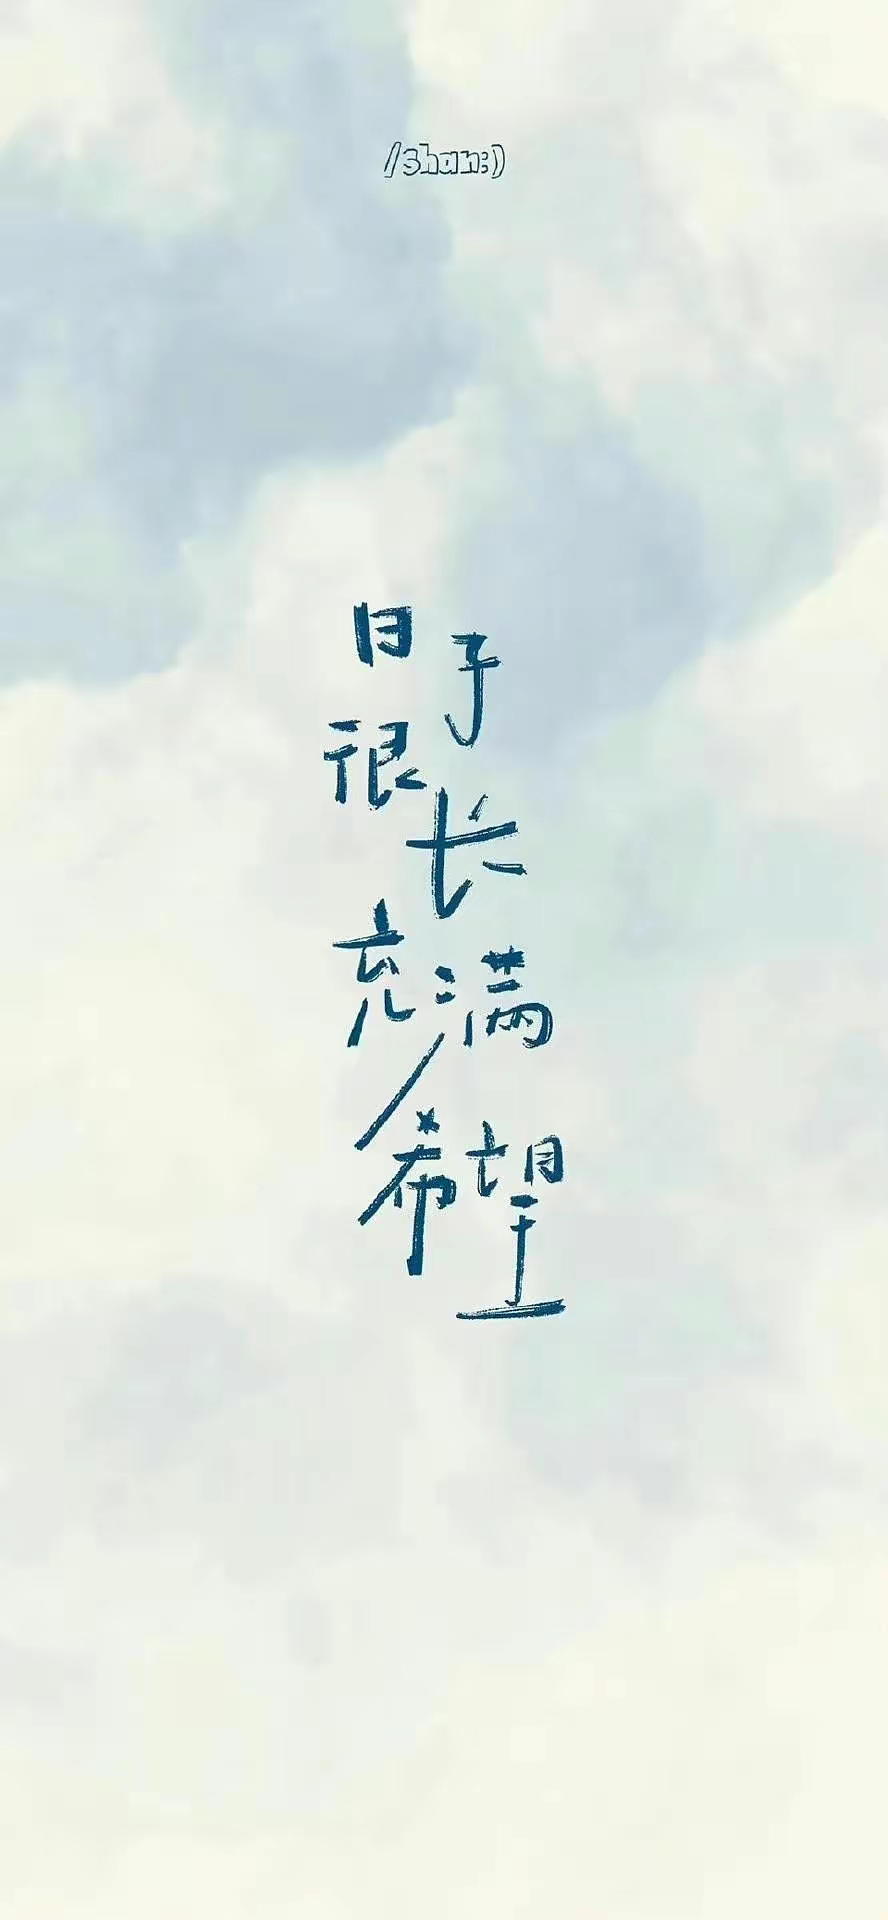 /shan:)
日子
很长
充满
希望